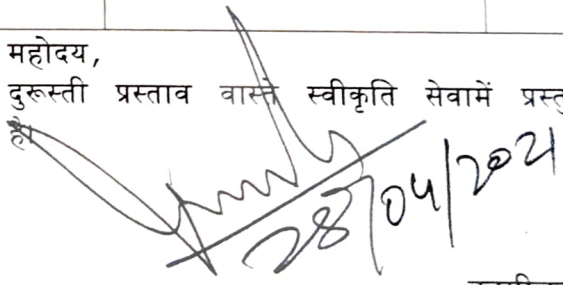 महोदय,
दुरूस्ती प्रस्ताव वास्ते स्वीकृति सेवामें
है।
28/04/2021